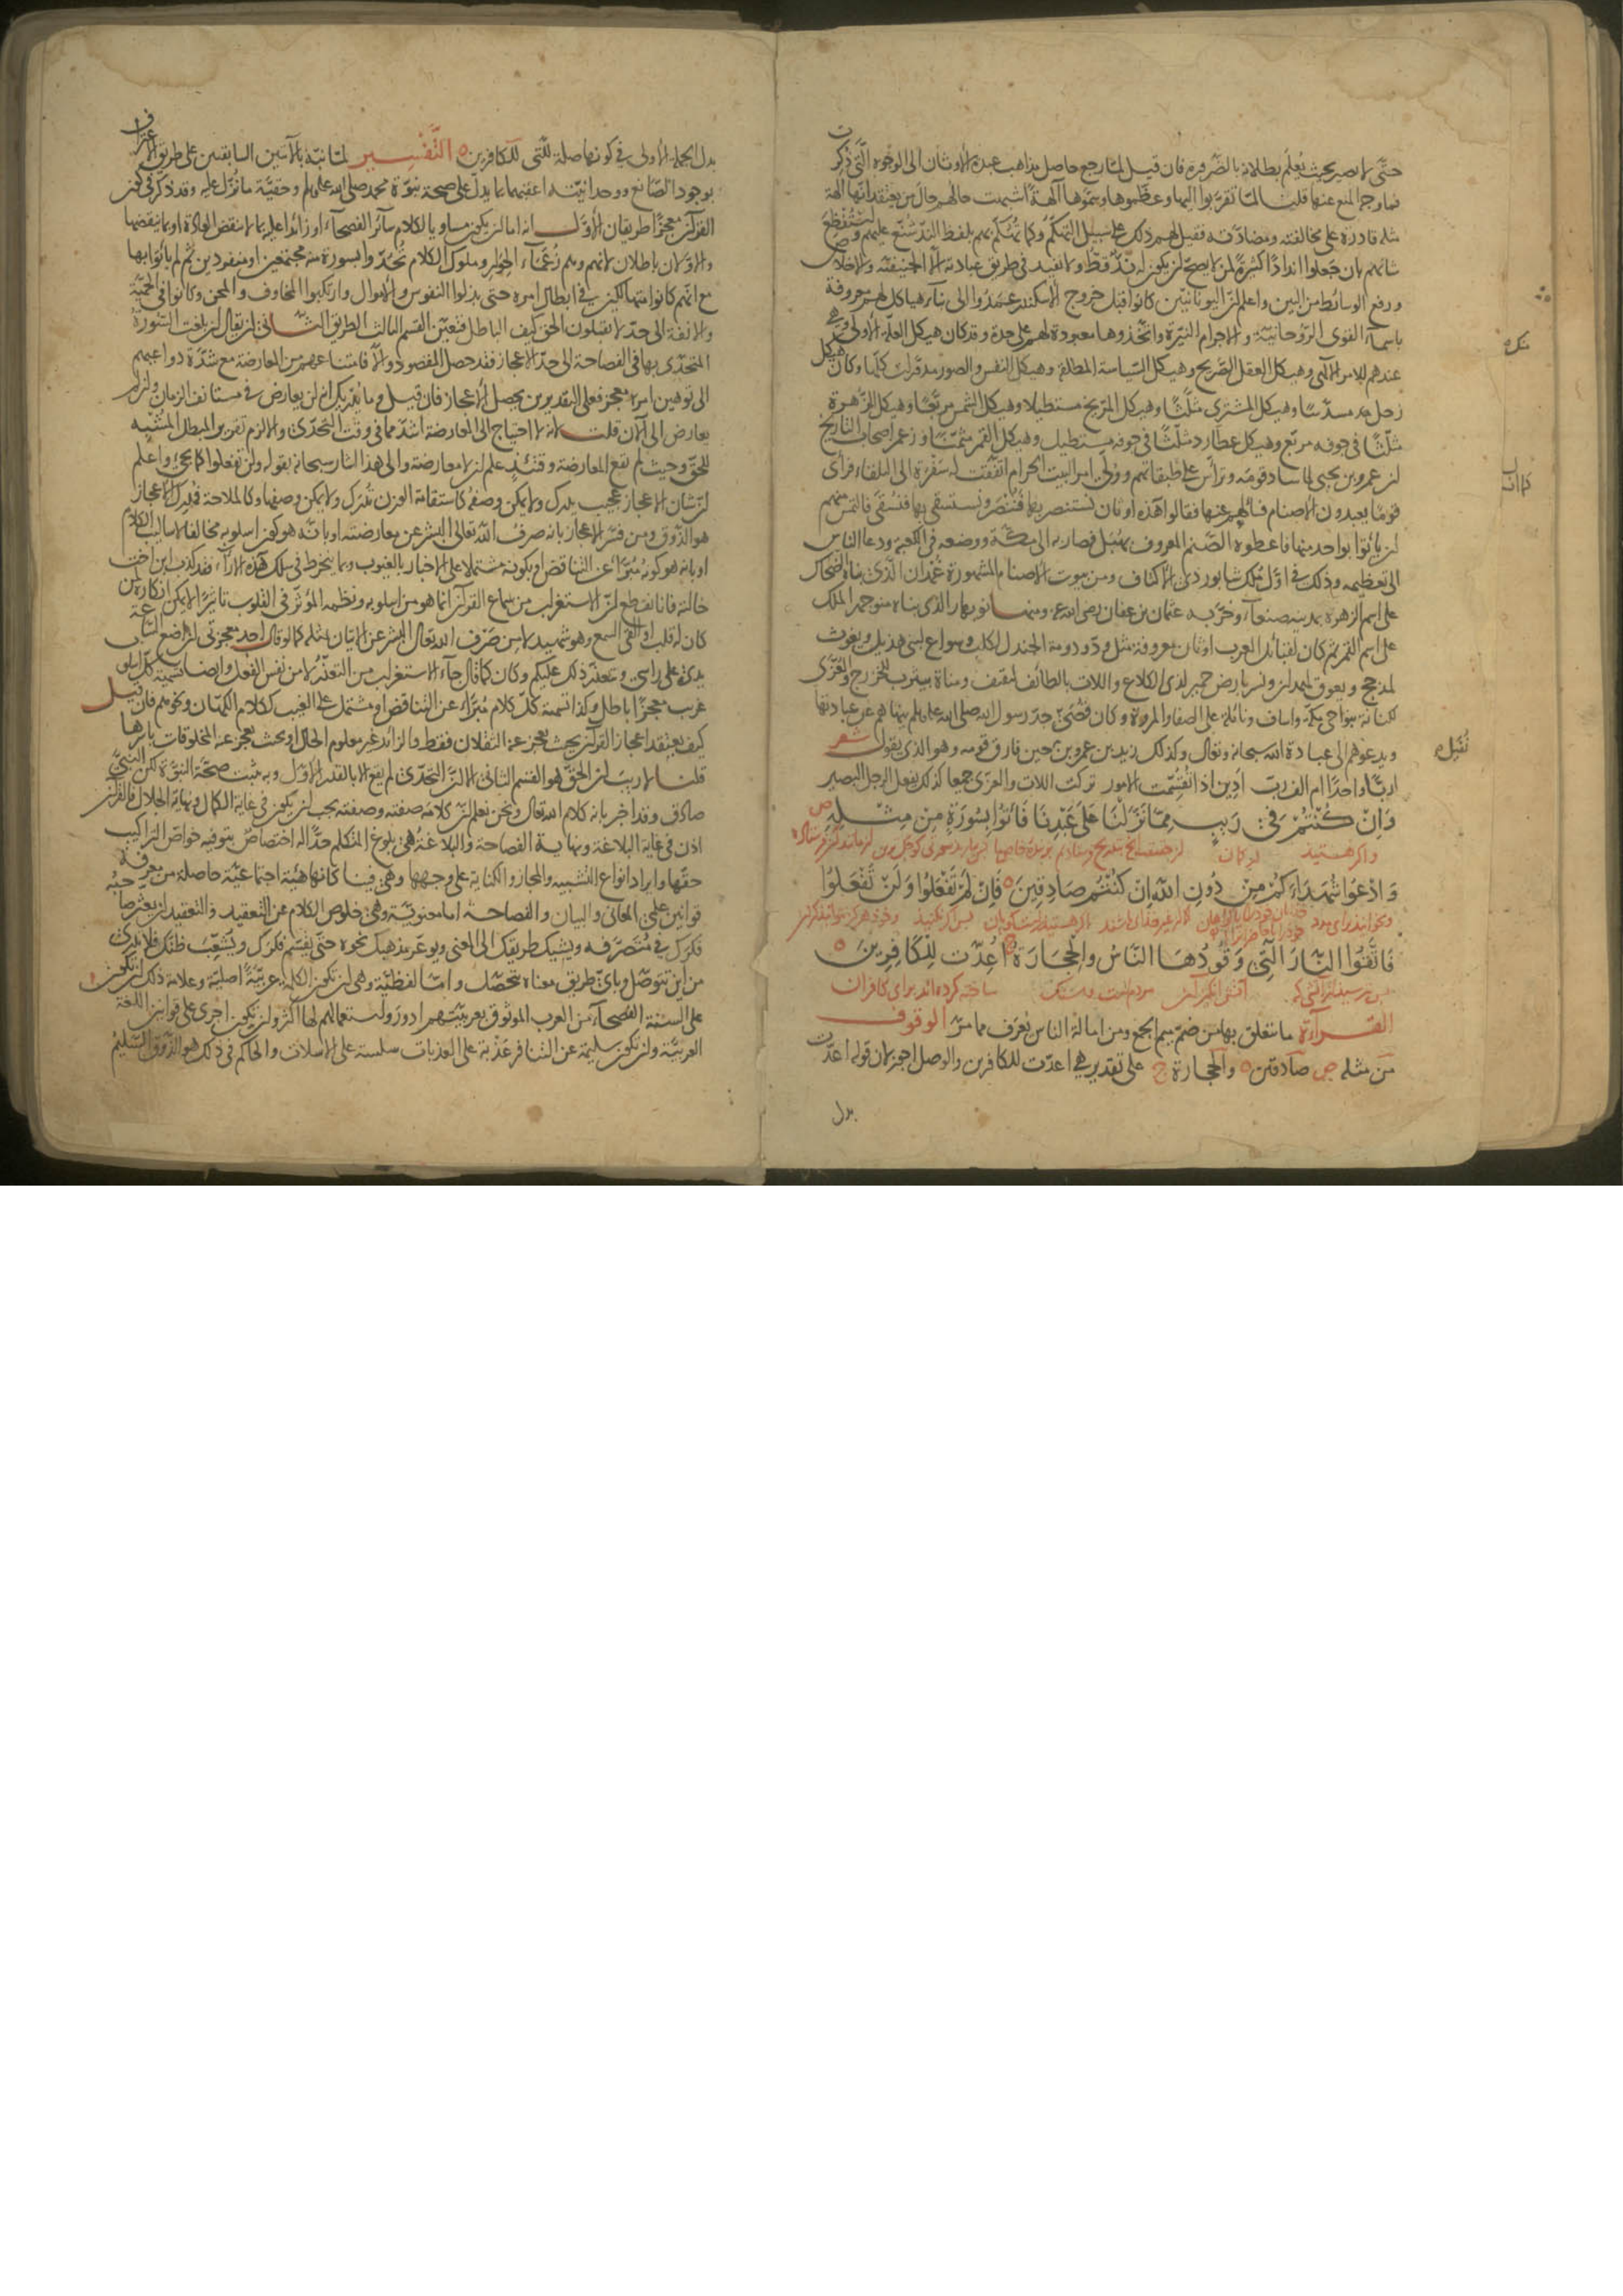 حتّى لا نصير بحيث يُعلَم بطلانه بالضرورة فان قيل لمّا رجع حاصل مذاهب عبدة الاوثان الى الوجوه الّتي ذُكر
فما وجه المنع عنها قلنا لمّا تقرّبوا اليها وعظّموها وسمّوها آلهةً اشبهت حالهم حال من يعتقد انّها آلهة
مثله قادرة على مخالفته ومضادّته فقيل لهم ذلك على سبيل التهكّم وكما تُهُكّم بهم بلفظ الندّ شُنّع عليهم واستُفظِعَ
شانهم بان جعلوا اندادًا كثيرةً لمن لا يصحّ ان يكون له ندّ قطّ ولا تفيد في طريق عبادته الّا الحنيفيّة والاخلاص
ورفع الوسائط من البين واعلم ان اليونانيّين كانوا قبل خروج الاسكندر عمدوا الى بناء هياكل لهم معروفة
باسماء القوى الروحانيّة والاجرام النيّرة واتّخذوها معبودة لهم على حدة وقد كان هيكل العلّة الاولى وهي
عندهم للامر الالهي وهيكل العقل الصريح وهيكل السياسة المطلقة وهيكل النفس والصور مدوّرات كلّها وكان هيكل
زحل مسدّسًا وهيكل المشتري مثلّثًا وهيكل المرّيخ مستطيلا وهيكل الشمس مربّعًا وهيكل الزُهرة
مثلّثًا في جوفه مربّع وهيكل عطارد مثلّثًا في جوفه مستطيل وهيكل القمر مثمّنًا وزعم اصحاب التاريخ
ان عمرو بن لحيّ لمّا ساد قومه وترأّس على طبقاتهم وولي امر البيت الحرام اتّفقت له سَفْرة الى البلقاء فرأى
قومًا يعبدون الاصنام فسألهم عنها فقالوا هذه اوثان نستنصر بها فنُنصَر ونستسقي بها فنُسقَى فالتمس منهم
ان يأتوا بواحد منها فاعطوه الصنم المعروف بهُبَل فصار به الى مكّة ووضعه في الكعبة ودعا الناس
الى تعظيمه وذلك في اوّل مُلك شابور ذي الاكتاف ومن بيوت الاصنام المشهورة غُمدان الّذي بناه الضحاك
على اسم الزهرة بمدينة صنعاء وخرّبه عثمان بن عفان رضي الله عنه ومنها نوبهار الذي بناه منوجهر الملك
على اسم القمر ثم كان لقبائل العرب اوثان معروفة مثل ودّ بدومة الجندل لكلب وسواع لبني هذيل ويغوث
لمذحج ويعوق لهمدان ونسر بارض حمير لذي الكلاع واللات بالطائف لثقيف ومناة بيثرب للخزرج والعُزّى
لكنانة بنواحي مكّة واساف ونائلة على الصفا والمروة وكان قُصَيّ جدّ رسول الله صلى الله عليه وسلم ينهاهم عن عبادتها
ويدعوهم الى عبادة الله سبحانه وتعالى وكذلك زيد بن عمرو بن نفيل حين فارق قومه وهو الذي يقول شعر
اربًّا واحدًا ام الف ربّ ادين اذا تُقُسّمت الامور تركت اللات والعزّى جميعا كذلك يفعل الرجل البصير
وَاِنْ كُنْتُمْ فِي رَيْبٍ مِمَّا نَزَّلْنَا عَلَى عَبْدِنَا فَأْتُوا بِسُورَةٍ مِنْ مِثْلِهِ ص
واكر هستيد در كمان
وَادْعُوا شُهَدَاءَكُمْ مِنْ دُونِ اللهِ اِنْ كُنْتُمْ صَادِقِينَ ٥ فَاِنْ لَمْ تَفْعَلُوا وَلَنْ تَفْعَلُوا
فَاتَّقُوا النَّارَ الَّتِي وَقُودُهَا النَّاسُ وَالْحِجَارَةُ ج اُعِدَّتْ لِلْكَافِرِينَ ٥
ساخته كرده اند براى كافران
القراءة ما يتعلق بها من ضمّ ميم الجمع ومن امالة الناس يُعرَف مما مرّ الوقوف
مِن مثله ص صادقين ٥ والحجارة ج على تقدير هي اعدّت للكافرين والوصل اجوز لان قوله اعدّت
بدل
نُفَيل
بدل الجملة الاولى في كونها صلة للّتي للكافرين ٥ التَّفْسِير لمّا نبّه بالآيتين السابقتين على طريق الاعتراف
بوجود الصانع ووحدانيّته اعقبهما بما يدلّ على صحة نبوّة محمد صلى الله عليه وسلم وحقيّة ما نُزّل عليه وقد ذُكر في كون
القرآن معجزًا طريقان الاوّل انه اما ان يكون مساويا لكلام سائر الفصحاء او زائدًا عليه بما لا ينقض العادة او بما ينقضها
والاوّلان باطلان لانهم وهم زُعَماء الحِوار وملوك الكلام تُحُدّوا بسورة منه مجتمعين او منفردين ثُمّ لم يأتوا بها
مع انّهم كانوا متهالكين في ابطال امره حتى بذلوا النفوس والاموال وارتكبوا المخاوف والمحن وكانوا في الحَمِيّة
والانفة الى حدّ لا يقبلون الحق كيف الباطل فتعيّن القسم الثالث الطريق الثاني ان يقال ان بلغت السورة
المتحدّى بها في الفصاحة الى حدّ الاعجاز فقد حصل المقصود والّا فامتناعهم من المعارضة مع شدّة دواعيهم
الى توهين امره معجز فعلى التقديرين يحصل الاعجاز فان قيل وما يُدريك ان لن يعارض في مستأنف الزمان وان لم
يعارض الى الآن قلت لانه لا احتياج الى المعارضة اشدّ مما في وقت التحدّي والّا لزم تقرير المبطل المشبّه
للحقّ وحيث لم تقع المعارضة وقتئذٍ علم ان لا معارضة والى هذا اشار سبحانه بقوله ولن تفعلوا كما يجيء واعلم
ان شان الاعجاز عجيب يدرك ولا يمكن وصفه كاستقامة الوزن تُدرَك ولا يمكن وصفها وكالملاحة فمُدرِك الاعجاز
هو الذوق ومن فسّر الاعجاز بانه صرفُ الله تعالى البشر عن معارضته او بانه هو كون اسلوبه مخالفا لاساليب الكلام
او بانه هو كونه مُبَرّأ عن التناقض او بكونه مشتملا على الاخبار بالغيوب وبما ينخرط في سلك هذه الآراء فقد كذب ابن اخت
خالته فانا نقطع ان الاستغراب من سماع القرآن انما هو من اسلوبه ونظمه المؤثّر في القلوب تاثيرًا لا يمكن انكاره لمن
كان له قلب او القى السمع وهو شهيد لا من صَرْف الله تعالى البشر عن الاتيان بمثله كما لو قال احد معجزتي ان اضع الساعة
يدي على راسي ويتعذّر ذلك عليكم وكان كما قال جاء الاستغراب من التعذّر لا من نفس الفعل وايضا تسمية كلّ اسلوب
غريب معجزًا باطل وكذا تسمية كلّ كلام مُبَرّاء عن التناقض او مشتمل على الغيب ككلام الكهّان ونحوهم فان قيل
كيف يعتقد اعجاز القرآن بحيث يعجز عنه الثقلان فقط والزائد غير معلوم الحال او بحيث يعجز عنه المخلوقات باسرها
قلنا لا ريب ان الحقّ هو القسم الثاني الا ان التحدّي لم يقع الا بالقدر الاوّل وبه يثبت صحّة النبوّة لكن النبيّ
صادق وقد اخبر بانه كلام الله تعالى ونحن نعلم ان كلامه صفته وصفته يجب ان يكون في غاية الكمال ونهاية الجلال فالقرآن
اذن في غاية البلاغة ونهاية الفصاحة والبلاغة هي بلوغ المتكلم حدًّا له اختصاصٌ بتوفية خواصّ التراكيب
حقّها وايراد انواع التشبيه والمجاز والكناية على وجهها وهي فينا كانها هيئة اجتماعيّة حاصلة من معرفة
قوانين علمَي المعاني والبيان والفصاحة اما معنويّة وهي خلوص الكلام عن التعقيد والتعقيد ان يعثر صاحبه
فكرك في مُتصرَّفه ويشيك طريقك الى المعنى ويوعّر مذهبك نحوه حتّى يقسّم فكرك ويُشعّب ظنّك فلا تدري
من اين تتوصّل وباىّ طريق معناه يتحصّل وامّا لفظيّة وهي ان تكون الكلمة عربيّةً اصليّة وعلامة ذلك ان تكون
على السنة الفُصحاء من العرب الموثوق بعربيّتهم ادور واستعمالهم لها اكثر وان تكون اجرى على قوانين اللغة
العربيّة وان تكون سليمة عن التنافر عَذْبة على العذبات سلسة على الاسلات والحاكم في ذلك هو الذوق السليمُ